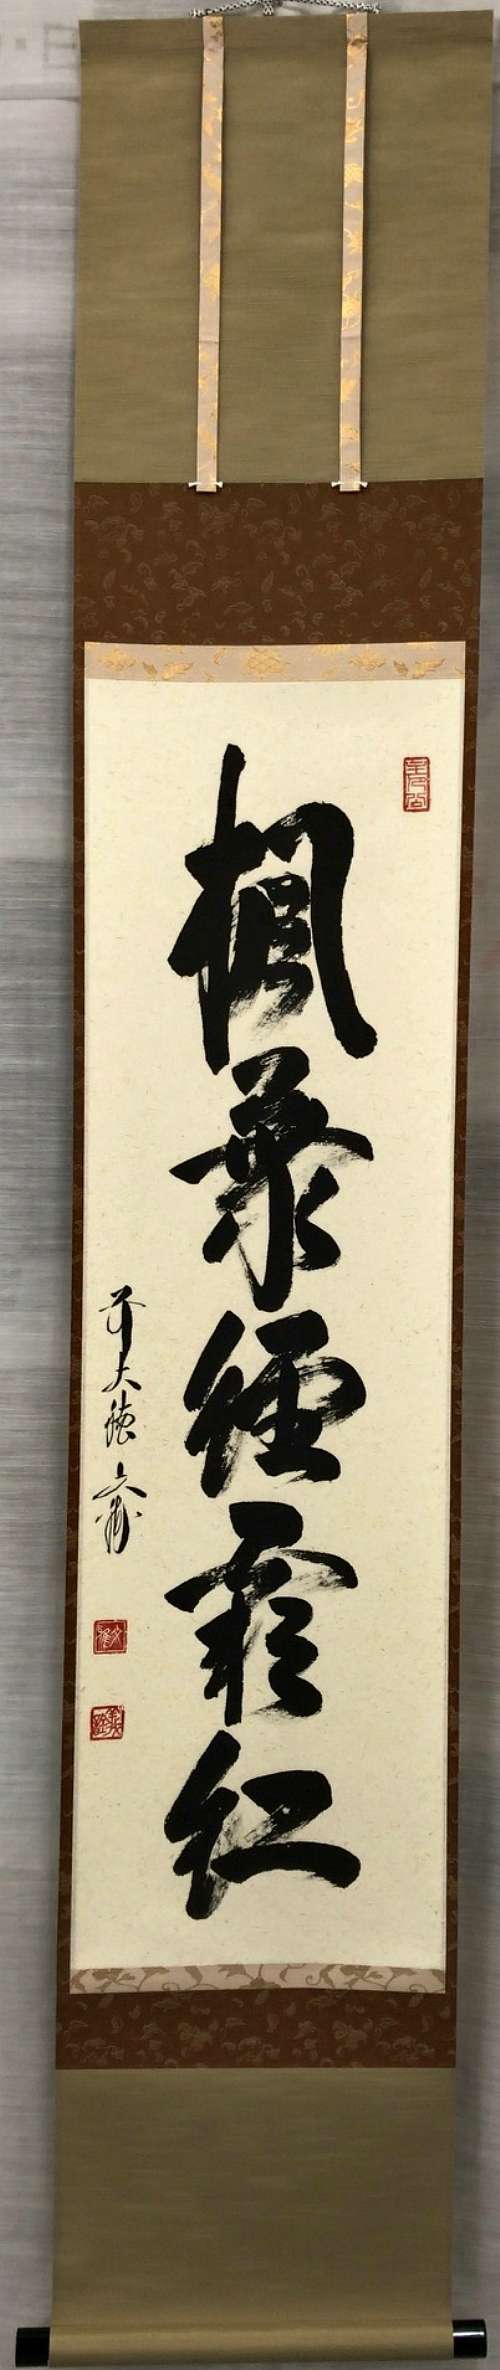 楓葉経霜紅
前大徳